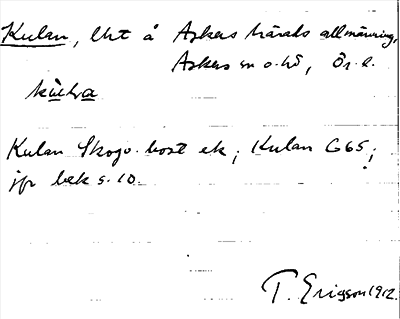 Kulan, lht å Askers härads allmänning,
Askers sn o. hd, Ör. l.
Kulan Skogv. bost ek; Kulan G65;
jfr bek s. 10.
T. Ericson 1912.